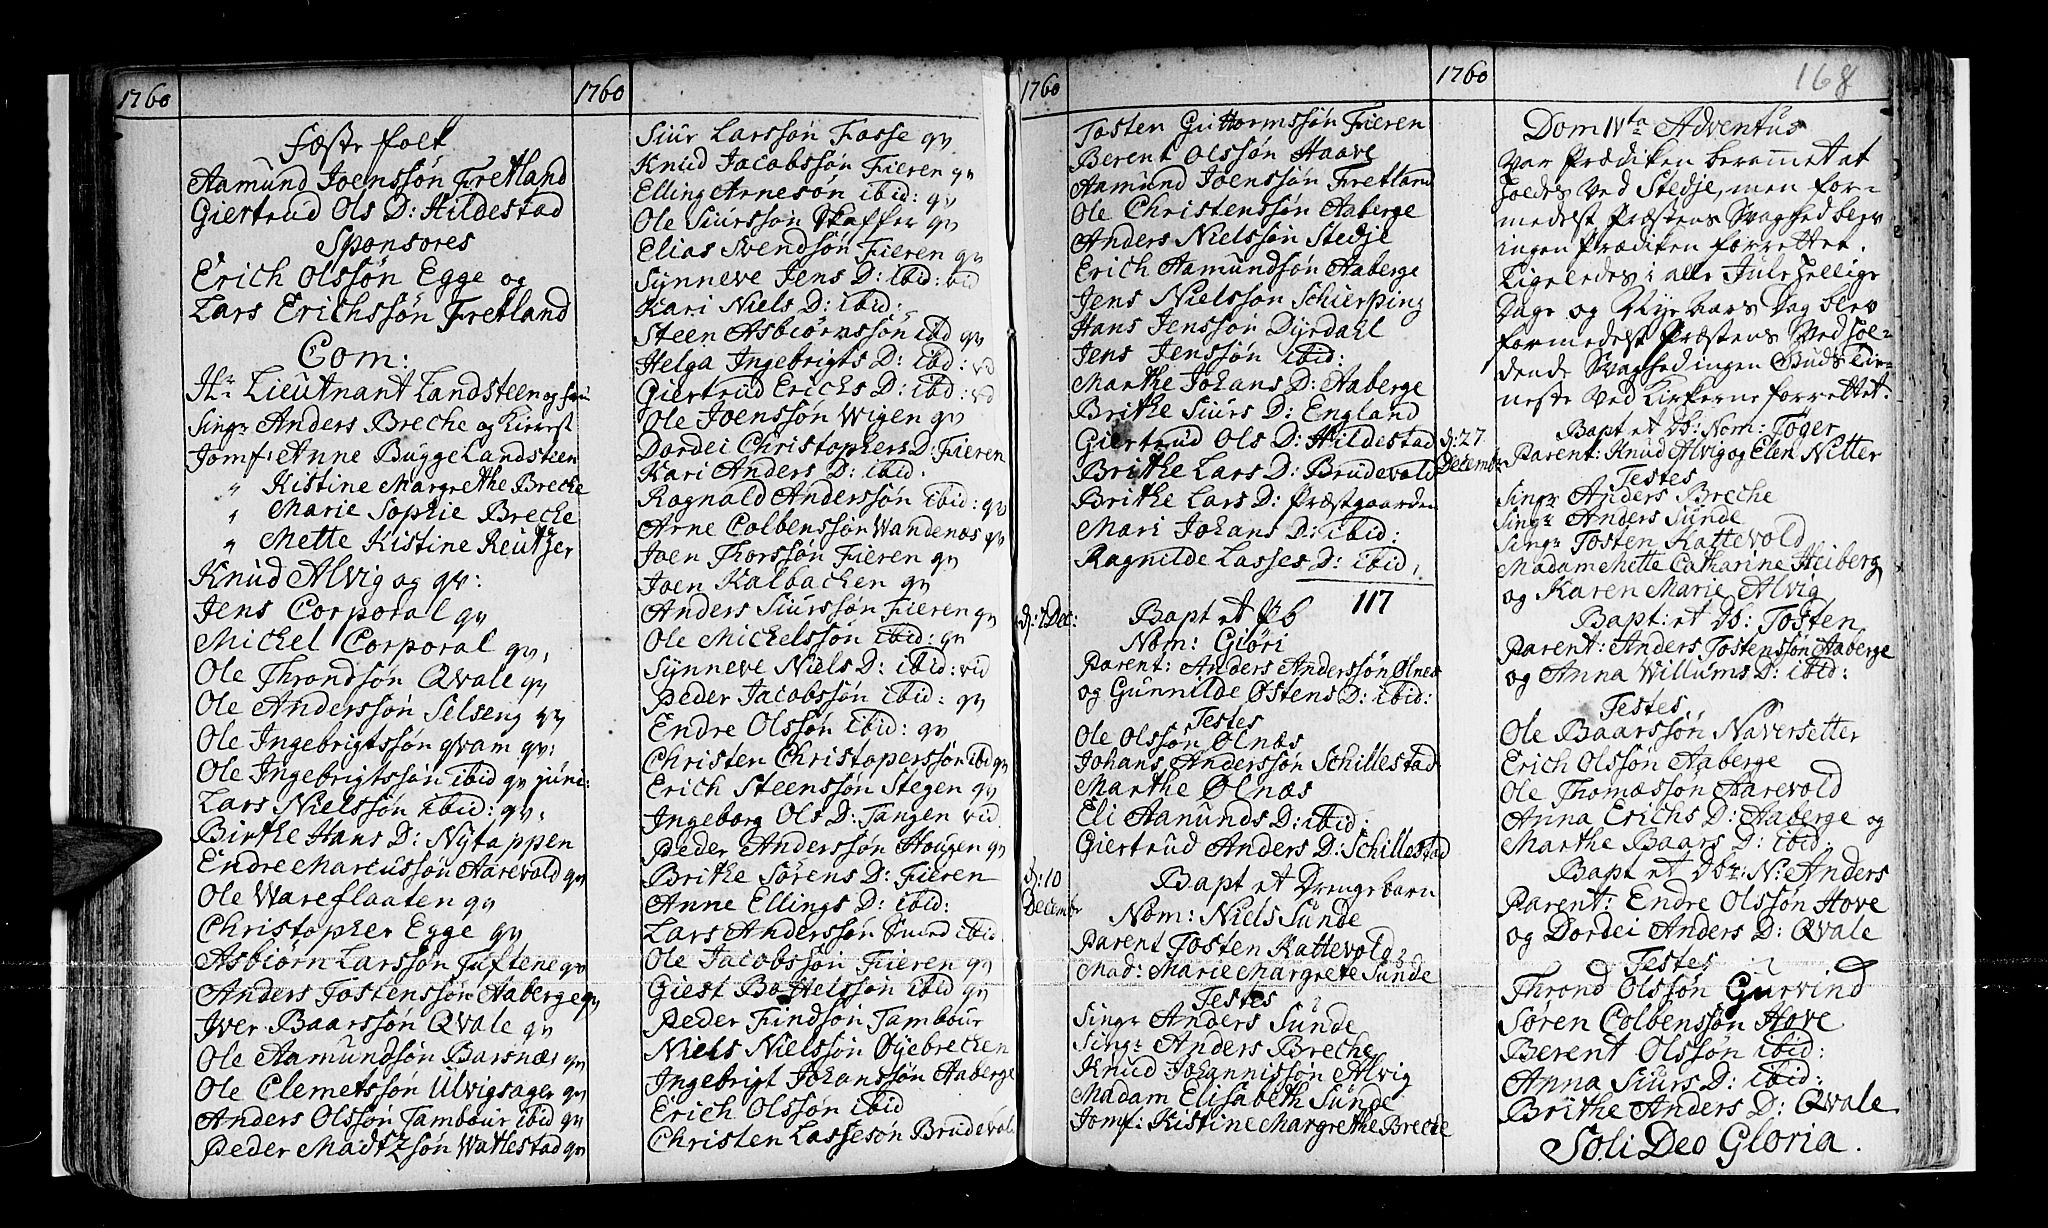 1760
Fæste folk
Aamund Joenssøn Fretland
Giertrud Ols D: Hildestad
Sponsores
Erich Olssøn Egge og
Lars Erichssøn Fretland
Com:
Hr Lieutnant Landsteen og
Singr Anders Breche og Kierest
Jomf: Anne Bugge Landstien
" Kistine Margrethe Breche
" Marie Sophie Breche
" Mette Kistine Reutzer
Knud Alvig og qv:
Jens Corporal qv
Michel Corporal qv,
Ole Throndsøn Qvale qv
Ole Anderssøn Selseng qv
Ole Ingebrigtssøn qvam qv:
Ole Ingebrigtssøn ibid qv juni:
Lars Nielssøn ibid: qv:
Birthe Hans D: Nytappen
Endre Marcussøn Aarevold qv
Ole Wareflaaten qv
Christopher Egge qv
Asbiørn Larssøn Tuftene qv
Anders Tostenssøn Aaberge qv
Iver Baarssøn Qvale qv
Ole Aamundsøn Barsnæs qv
Ole Clemetssøn Ulvigsager qv
Anders Olssøn Tambour ibid qv
Peder Madtzsøn Wathestad qv
1760
Siur Larssøn Fosse qv
Knud Jacobssøn Fieren qv
Elling Arnesøn ibid: qv
Ole Siurssøn Skaffer qv
Elias Svendsøn Fieren qv
Synneve Jens D: ibid: vid
Kari Niels D: ibid:
Steen Asbiørnssøn ibd qv
Helga Ingebrigts D: ibd: vd
Giertrud Erichs D: ibd: vd
Ole Joenssøn Wigen qv
Dordei Christophers D: Fieren
Kari Anders D: ibid:
Rognald Anderssøn ibid: qv
Arne Colbenssøn Wandenæs qv
Joen Thorssøn Fieren qv
Joen Kalbachen qv
Anders Siurssøn Fieren qv
Ole Michelssøn ibid: qv
Synneve Niels D: ibid: vid
Peder Jacobssøn ibid: qv
Endre Olssøn ibid: qv
Christen Christopherssøn ibd qv
Erich Steenssøn Stegen qv
Ingeborg Ols D: Tangen vid
Peder Anderssøn Hougen qv
Brithe Sørens D: Fieren
Anne Ellings D: ibid:
Lars Anderssøn Smed ibid
Ole Jacobssøn Fieren qv
Giest Bottelssøn ibid qv
Peder Findsøn Tambour
Niels Nielssøn Øyebrechen
Ingebrigt Johanssøn Aaberge
Erich Olssøn ibid
Christen Lassesøn Brudevold
1760
Tosten Guttormssøn Fieren
Berent Olssøn Haave
Aamund Joenssøn Fretland
Ole Christenssøn Aaberge
Anders Nielssøn Stedje
Erich Aamundsøn Aaberge
Jens Nielssøn Schierping
Hans Jenssøn Dyrdahl
Jens Jenssøn ibid:
Marthe Johans D: Aaberge
Brithe Siurs D: England
Giertrud Ols D: Hildestad
Brithe Lars D: Brudevold
Brithe Lars D: Præstgaarden
Mari Johans D: ibid:
Ragnilde Lasses D: ibid,
117
d: 7 Dec:
Bapt et Pb
Nom: Gløri
Parent: Anders Anderssøn Ølnes
og Gunnilde Østens D: ibid:
Testes
Ole Olssøn Ølnæs
Johans Anderssøn Schillestad
Marthe Ølnæs
Eli Aamunds D: ibid:
Giertrud Anders D: Schillestad
d: 10
Decembr
Bapt et Drengebarn
Nom: Niels Sunde
Parent Tosten Kattevold &
Mad: Marie Margrete Sunde
Testes
Singr Anders Sunde
Singr Anders Breche
Knud Johannissøn Alvig
Madam Elisabeth Sunde
Jomf: Kistine Margrethe Breche
1760
168
Dom IVta Adventus
var Prædiken berammet at
holdes ved Stedje, men for-
medelst Præstens Svaghed blev
ingen Prædiken forrettet.
Ligeledes: alle Jule Hellige
Dage og Nye Aars Dag blev
formedelst Præstens Ved hol-
dende Svaghed ingen Guds tie-
neste ved Kirkerne forrettet.
d: 27
Decembr
Bapt et Db: Nom: Jøger
Parent: Knud Alvig og Elen Nitter
Testes
Singr Anders Breche
Singr Anders Sunde
Singr Tosten Kattevold
Madam Mette Catharine Heiberg
og Karen Marie Alvig
Bapt: et Db: Tosten
Parent: Anders Tostenssøn Aaberge
og Anna Willums D: ibid:
Testes
Ole Baarssøn Naversetter
Erich Olssøn Aaberge
Ole Thomæssøn Aarevold
Anna Erichs D: Aaberge og
Marthe Baars D: ibid.
Bapt et Dbr: N: Anders
Parent: Endre Olssøn Hove
og Dordei Anders D: Qvale
Testes
Thrond Olssøn Gurvind
Søren Colbenssøn Hove
Berent Olssøn ibid:
Anna Siurs D: ibid:
Brithe Anders D: Qvale
Soli Deo Gloria.